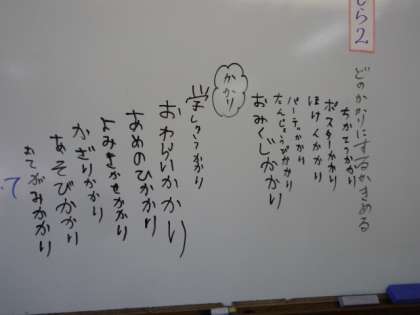 どのかかりにするかきめる
ポスターかかり
ほけんかかり
パーティかかり
たんじょうびかかり
おみくじかかり
かかり
おわらいかかり
あめのひかかり
よみきかせかかり
かざりかかり
あそびかかり
おてがみかかり